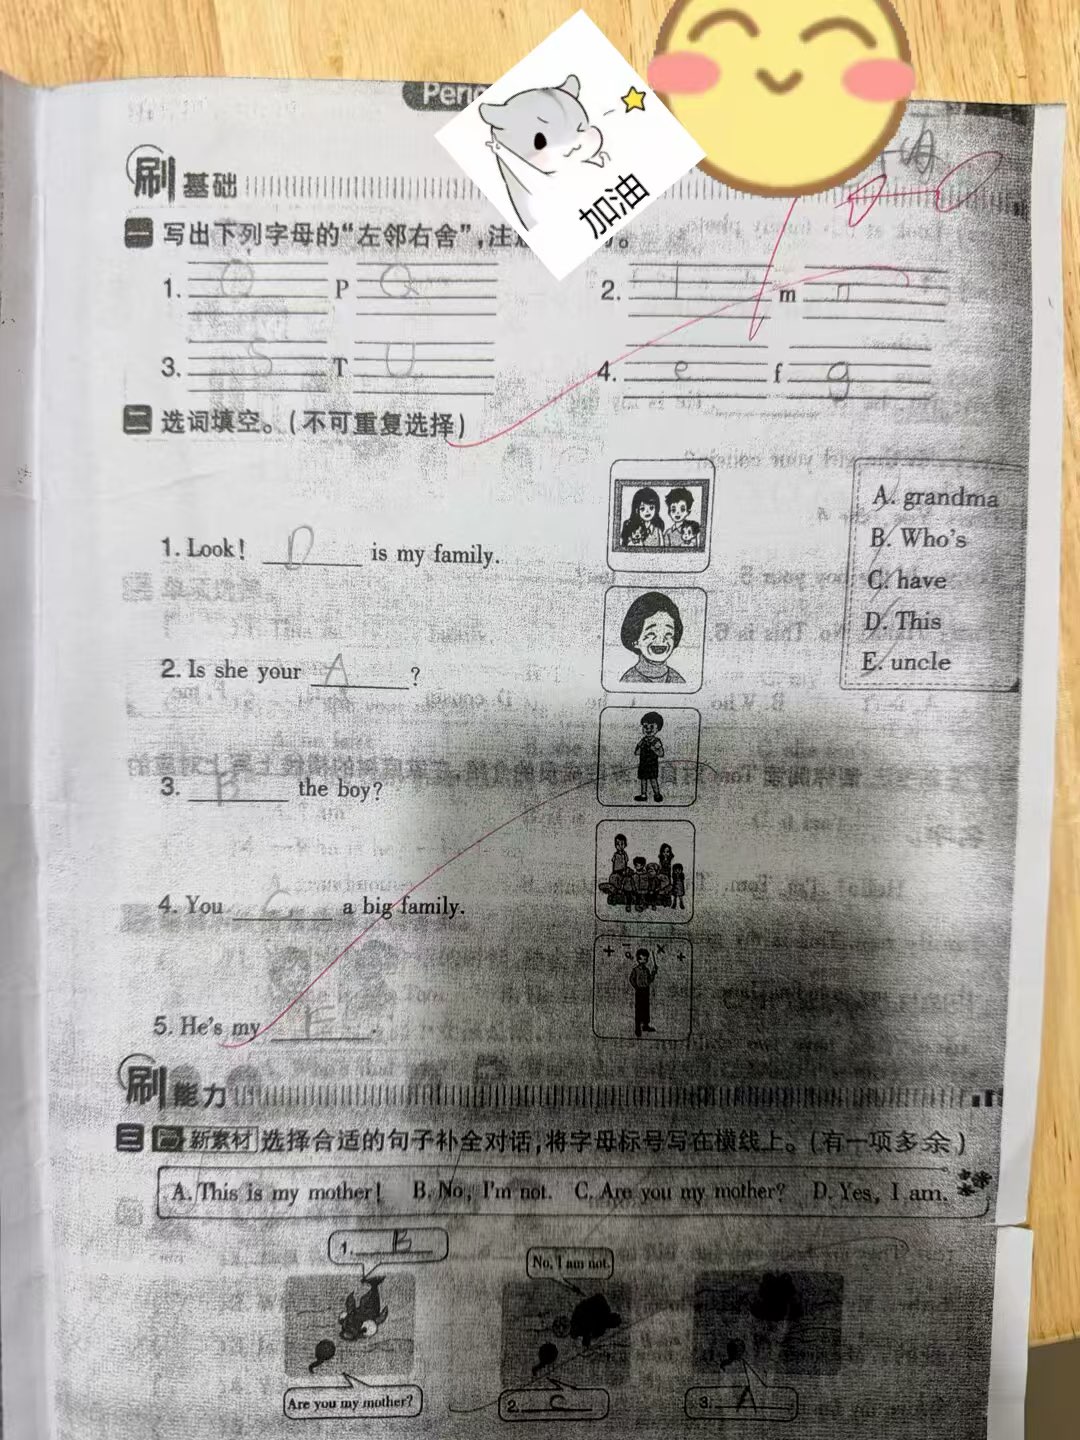 加油
刷 基础
一 写出下列字母的“左邻右舍”,注
1. O P Q 2. l m n
3. S T U 4. e f g
二 选词填空。(不可重复选择)
A. grandma
B. Who's
C. have
D. This
E. uncle
1. Look! D is my family.
2. Is she your A ?
3. B the boy?
4. You C a big family.
5. He's my E .
刷 能力
三 新素材 选择合适的句子补全对话,将字母标号写在横线上。(有一项多余)
A. This is my mother! B. No, I'm not. C. Are you my mother? D. Yes, I am.
1. B
No, I am not.
Are you my mother?
2. C
3. A